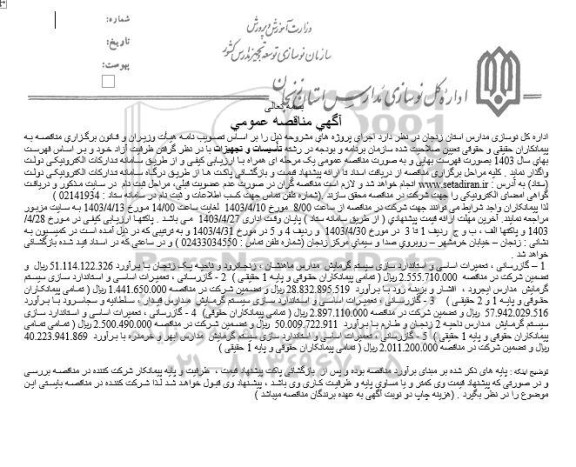 شماره:
تاریخ:
پیوست:
وزارت آموزش و پرورش
سازمان نوسازی توسعه و تجهیز مدارس کشور
اداره کل نوسازی مدارس استان زنجان
بسمه تعالی
آگهي مناقصه عمومي
اداره کل نوسازی مدارس استان زنجان در نظر دارد اجرای پروژه های مشروحه ذیل را بر اساس تصویب نامه هیأت وزیران و قانون برگزاری مناقصه به
پیمانکاران حقیقی و حقوقی تعیین صلاحیت شده سازمان برنامه و بودجه در رشته تأسیسات و تجهیزات با در نظر گرفتن ظرفیت آزاد خود و بر اساس فهرست
بهای سال 1403 بصورت فهرست بهایی و به صورت مناقصه عمومی یک مرحله ای همراه با ارزیابی کیفی و از طریق سامانه تدارکات الکترونیکی دولت
واگذار نماید . کلیه مراحل برگزاری مناقصه از دریافت اسناد تا ارائه پیشنهاد قیمت و بازگشائی پاکت ها از طریق درگاه سامانه تدارکات الکترونیکی دولت
(ستاد) به آدرس : www.setadiran.ir انجام خواهد شد و لازم است مناقصه گران در صورت عدم عضویت قبلی، مراحل ثبت نام در سایت مذکور و دریافت
گواهی امضای الکترونیکی را جهت شرکت در مناقصه محقق سازند .(شماره تلفن تماس جهت کسب اطلاعات و ثبت نام در سامانه ستاد : 02141934 )
لذا پیمانکاران واجد شرایط می توانند جهت شرکت در مناقصه از ساعت 8/00 مورخ 1403/4/10 لغایت ساعت 14/00 مورخ 1403/4/13 به سایت مزبور
مراجعه نمایند. آخرین مهلت ارائه قیمت پیشنهادی ( از طریق سامانه ستاد ) پایان وقت اداری 1403/4/27 می باشد . پاکتها ارزیابی کیفی در مورخ 4/28/
1403 و پاکتها الف ، ب و ج ردیف 1 تا 3 در مورخ 1403/4/30 و ردیف 4 و 5 در مورخ 1403/4/31 و به ترتیبی که در ذیل آمده است در کمیسیون به
نشانی : زنجان – خیابان خرمشهر – روبروی صدا و سیمای مرکز زنجان (شماره تلفن تماس : 02433034550 ) و در ساعتی که در اسناد قید شده بازگشائی
خواهد شد .
1 – گازرسانی ، تعمیرات اساسی و استاندارد سازی سیستم گرمایش مدارس ماهنشان ، زنجانرود و ناحیه یک زنجان با برآورد 51.114.122.326 ریال و
تضمین شرکت در مناقصه 2.555.710.000 ریال ( تمامی پیمانکاران حقوقی و پایه 1 حقیقی ) 2 - گازرسانی ، تعمیرات اساسی و استاندارد سازی سیستم
گرمایش مدارس ایجرود ، افشار و بزینه رود با برآورد 28.832.895.519 ریال و تضمین شرکت در مناقصه 1.441.650.000 ریال ( تمامی پیمانکاران
حقوقی و پایه 1 و 2 حقیقی ) 3 - گازرسانی ، تعمیرات اساسی و استاندارد سازی سیستم گرمایش مدارس قیدار ، سلطانیه و سجاسرود با برآورد
57.942.029.516 ریال و تضمین شرکت در مناقصه 2.897.110.000 ریال ( تمامی پیمانکاران حقوقی) 4 - گازرسانی ، تعمیرات اساسی و استاندارد سازی
سیستم گرمایش مدارس ناحیه 2 زنجان و طارم با برآورد 50.009.722.911 ریال و تضمین شرکت در مناقصه 2.500.490.000 ریال ( تمامی
پیمانکاران حقوقی و پایه 1 حقیقی) 5 - گازرسانی ، تعمیرات اساسی و استاندارد سازی سیستم گرمایش مدارس ابهر و خرمدره با برآورد 40.223.941.869
ریال و تضمین شرکت در مناقصه 2.011.200.000 ریال ( تمامی پیمانکاران حقوقی و پایه 1 حقیقی )
توضیح اینکه : پایه های ذکر شده بر مبنای برآورد مناقصه بوده و پس از بازگشائی پاکت پیشنهاد قیمت ، ظرفیت و پایه پیمانکار شرکت کننده در مناقصه بررسی
و در صورتی که پیشنهاد قیمت وی کمتر و یا مساوی پایه و ظرفیت کاری وی باشد ، پیشنهاد وی قبول خواهد شد لذا شرکت کننده در مناقصه بایستی این
موضوع را در نظر بگیرد . (هزینه چاپ دو نوبت آگهی به عهده برندگان مناقصه میباشد )